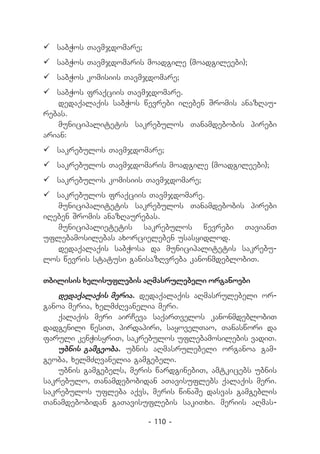 ✓ საბჭოს თავმჯდომარე;
✓ საბჭოს თავმჯდომარის მოადგილე (მოადგილეები);
✓ საბჭოს კომისიის თავმჯდომარე;
✓ საბჭოს ფრაქციის თავმჯდომარე.
დედაქალაქის საბჭოს წევრები იღებენ შრომის ანაზღაუ-
რებას.
მუნიციპალიტეტის საკრებულოს თანამდებობის პირები
არიან:
✓ საკრებულოს თავმჯდომარე;
✓ საკრებულოს თავმჯდომარის მოადგილე (მოადგილეები);
✓ საკრებულოს კომისიის თავმჯდომარე;
✓ საკრებულოს ფრაქციის თავმჯდომარე.
მუნიციპალიტეტის საკრებულოს თანამდებობის პირები
იღებენ შრომის ანაზღაურებას.
მუნიციპალიეტეტის საკრებულოს წევრები თავიანთ
უფლებამოსილებას ახორციელებენ უსასყიდლოდ.
დედაქალაქის საბჭოსა და მუნიციპალიტეტის საკრებუ-
ლოს წევრის სტატუსი განისაზღვრება კანონმდებლობით.
თბილისის ხელისუფლების აღმასრულებელი ორგანოები
დედაქალაქის მერია. დედაქალაქის აღმასრულებელი ორ-
განოა მერია, ხელმძღვანელია მერი.
ქალაქის მერი აირჩევა საქართველოს კანონმდებლობით
დადგენილი წესით, პირდაპირი, საყოველთაო, თანასწორი და
ფარული კენჭისყრით, საკრებულოს უფლებამოსილების ვადით.
უბნის გამგეობა. უბნის აღმასრულებელი ორგანოა გამ-
გეობა, ხელმძღვანელია გამგებელი.
უბნის გამგებელს, მერის წარდგინებით, ამტკიცებს უბნის
საკრებულო, თანამდებობიდან ათავისუფლებს ქალაქის მერი.
საკრებულოს უფლება აქვს, მერის წინაშე დასვას გამგებლის
თანამდებობიდან გათავისუფლების საკითხი. მერიის აღმას-
- 110 -